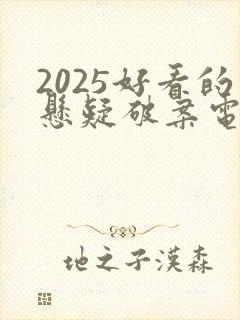 2025好看的
懸疑破案電
地之子漢森